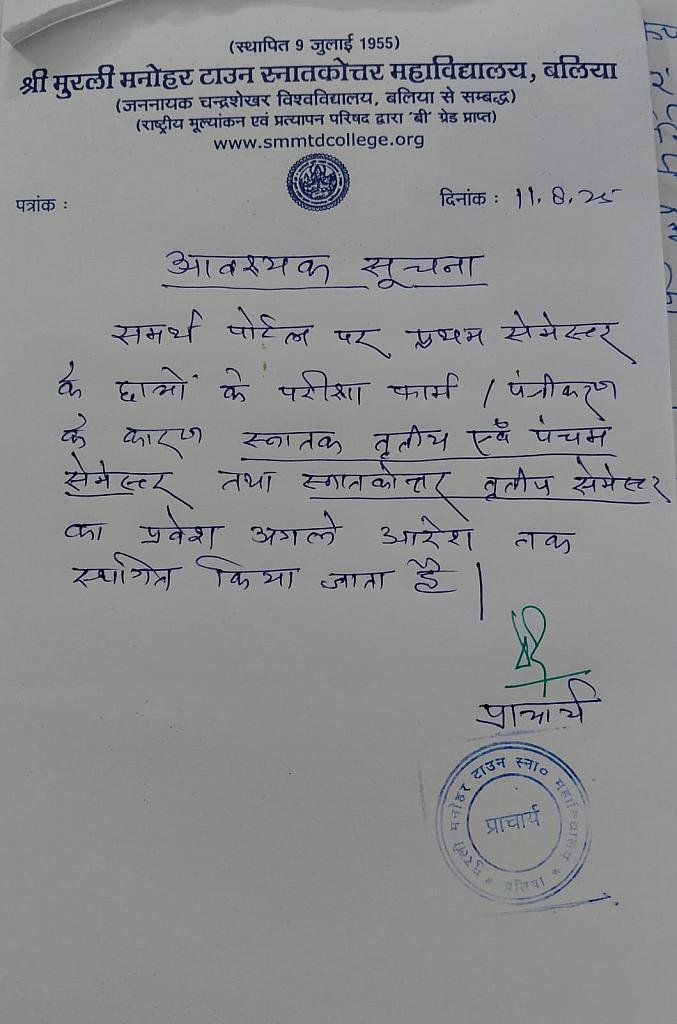 (स्थापित 9 जुलाई 1955)
श्री मुरली मनोहर टाउन स्नातकोत्तर महाविद्यालय, बलिया
(जननायक चन्द्रशेखर विश्वविद्यालय, बलिया से सम्बद्ध)
(राष्ट्रीय मूल्यांकन एवं प्रत्यापन परिषद द्वारा 'बी' ग्रेड प्राप्त)
www.smmtdcollege.org
पत्रांक :
दिनांक : 11.8.25
आवश्यक सूचना
समर्थ पोर्टल पर प्रथम सेमेस्टर
के छात्रों के परीक्षा फार्म / पंजीकरण
के कारण स्नातक तृतीय एवं पंचम
सेमेस्टर तथा स्नातकोत्तर तृतीय सेमेस्टर
का प्रवेश अगले आदेश तक
स्थगित किया जाता है|
प्राचार्य
मुरली मनोहर टाउन स्ना० महाविद्यालय
प्राचार्य
* बलिया *